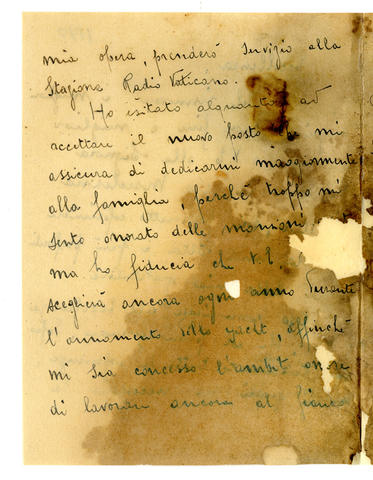 mia opera, prenderò servizio alla
Stazione Radio Vaticano.
Ho esitato alquanto ad
accettare il nuovo posto che mi
assicura di dedicarmi maggiormente
alla famiglia, perché troppo mi
sento onorato delle mansioni
ma ho fiducia che V.E.
sceglierà ancora ogni anno durante
l'armamento dello yacht, affinché
mi sia concesso l'ambito onore
di lavorare ancora al fianco